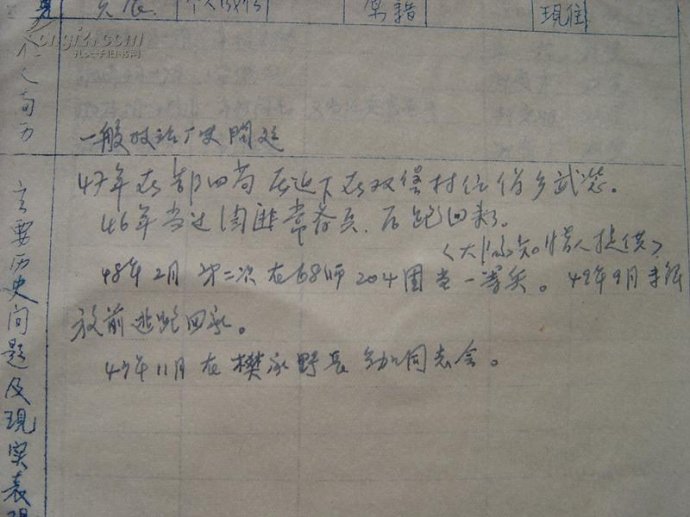 贫农
个人成份
原籍
現住
本人简历
一般政治历史問题
主要历史问题及現实表現
47年在部四尚 左近下在双堡村任伪乡武装。
46年当过阎匪常备兵，后跑回家。
〈大队知情人提供〉
48年2月 第二次在68师204团当一等兵。49年9月未解
放前逃跑回家。
47年11月在樊家野参加同志会。
kongfz.com
孔夫子旧书网